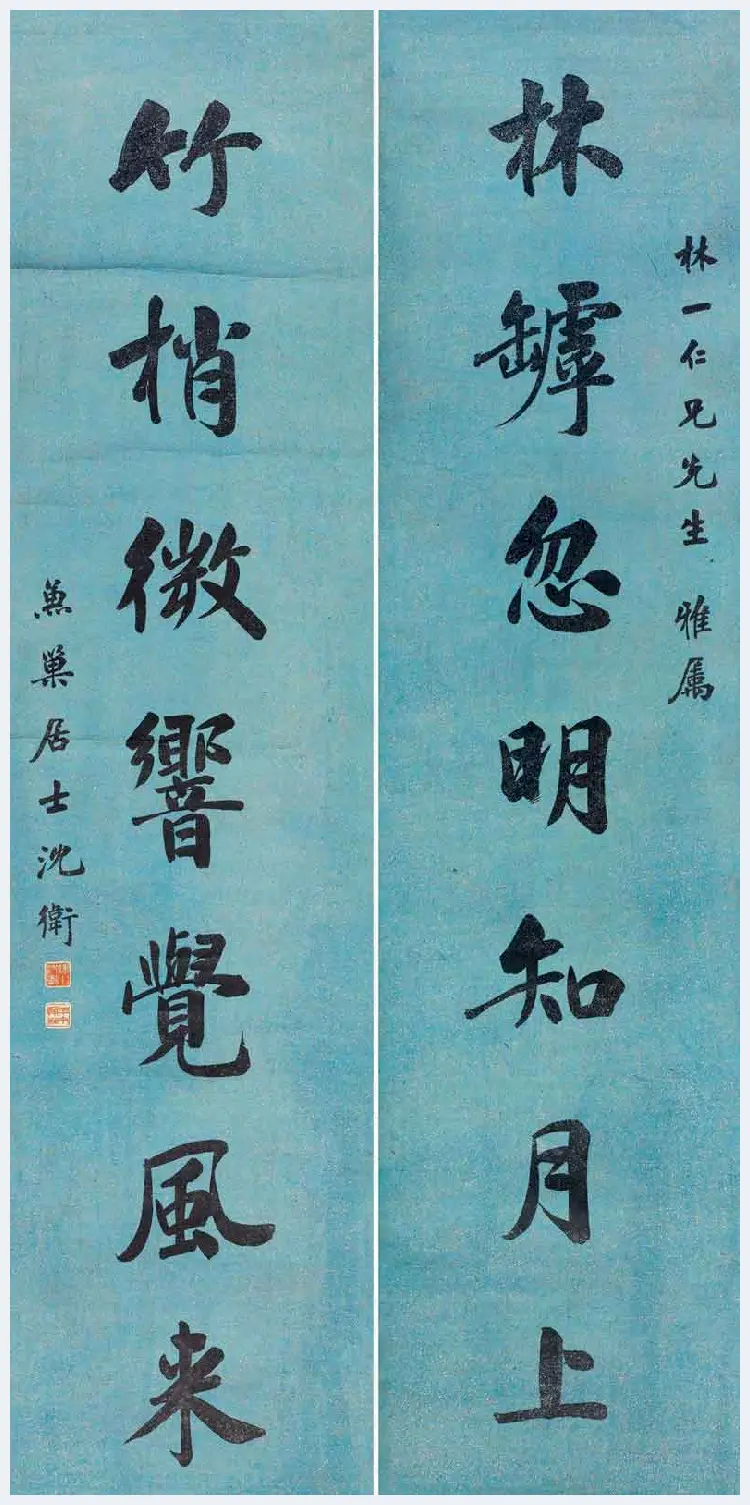 林一仁兄先生 雅属
林罅忽明知月上
竹梢微響覺風来
兼巢居士沈衛